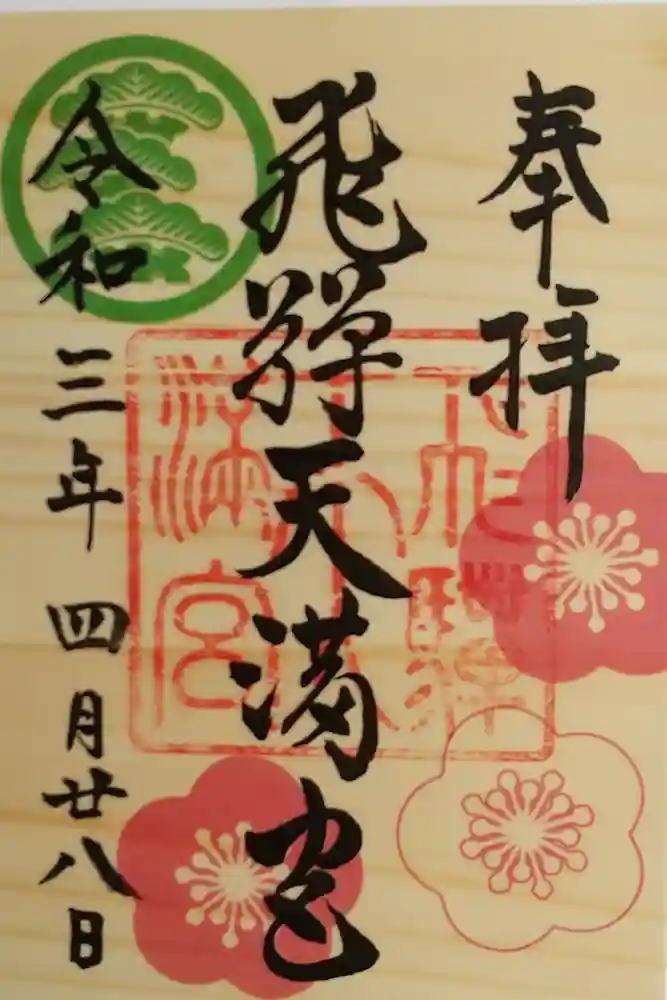 奉拝
飛騨天満宮
令和三年四月廿八日
飛騨
天
満宮